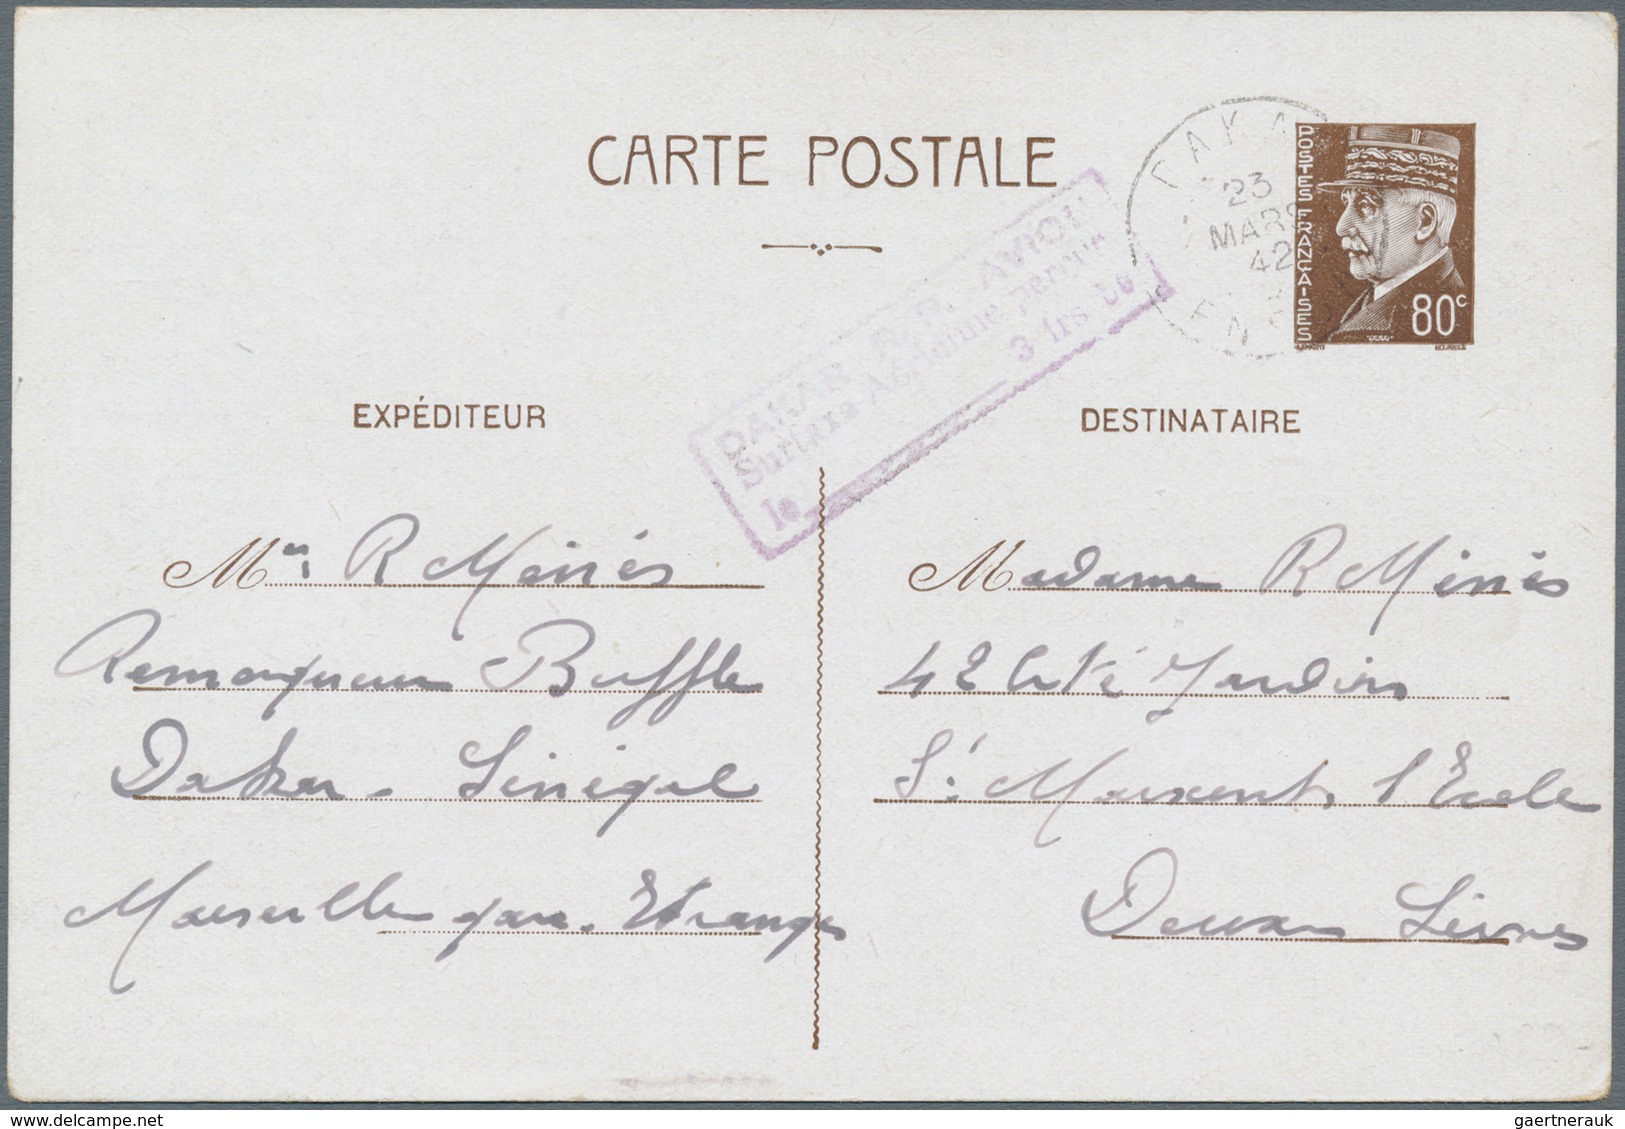 CARTE POSTALE
DAKAR R.P. AVION
Surtaxe Aérienne perçue
3 frs 00
le
DAKAR
23
MARS
42
POSTES FRANÇAISES
80c
EXPÉDITEUR
Mr R Ménès
Remorqueur Buffle
Dakar - Sénégal
Marseille gare - Etranger
DESTINATAIRE
Madame R Ménès
42 Cité Jardins
St Maixent l'Ecole
Deux Sèvres
delcampe.net
gaertnerauk